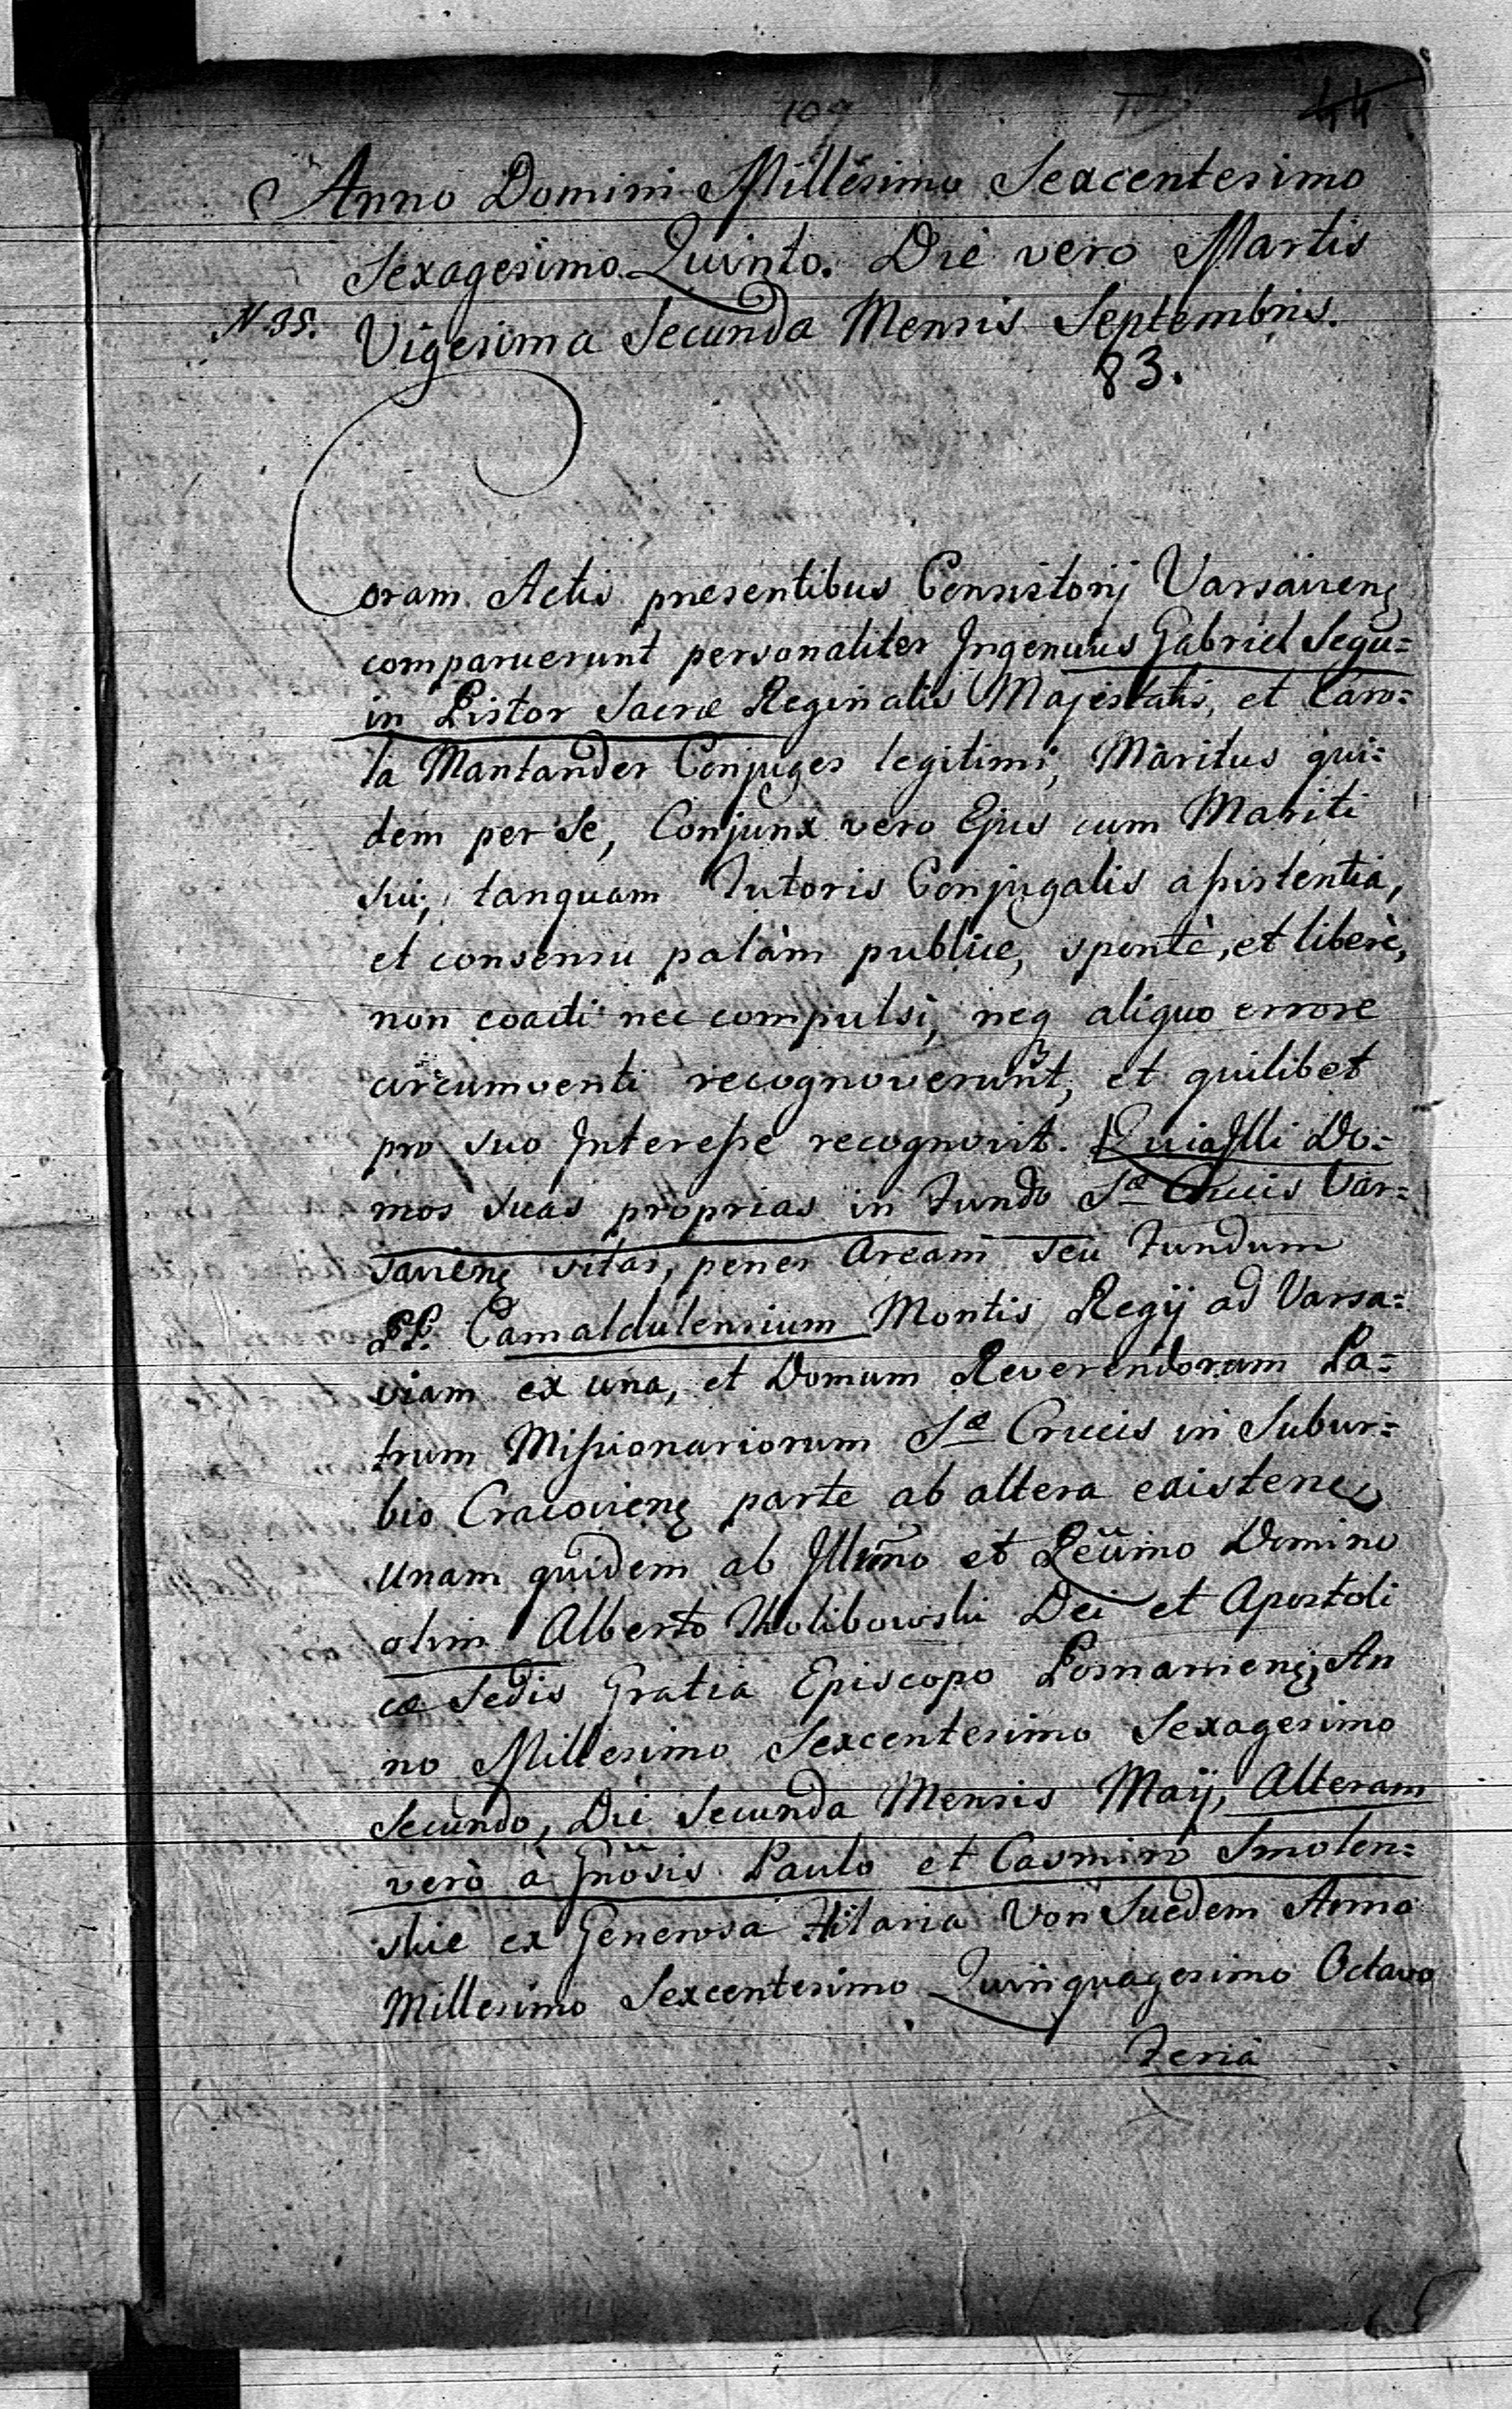 109 44
Anno Domini Millesimo Sexcentesimo
Sexagesimo Quinto. Die vero Martis
N. 35. Vigesima Secunda Mensis Septembris.
83.
Coram Actis presentibus Consistorij Varsaviens
comparuerunt personaliter Ingenuus Gabriel Segu=
in Pistor Sacræ Reginalis Majestatis, et Caro=
la Mantander Conjuges legitimi, Maritus qui=
dem per se, Conjunx vero Ejus cum Mariti
sui, tanquam Tutoris Conjugalis assistentia,
et consensu palàm publice, spontè, et liberè,
non coacti nec compulsi, neq aliquo errore
circumventi recognoverunt, et quilibet
pro suo Interesse recognovit. Quia Illi Do=
mos suas proprias in Fundo Sæ Crucis Var=
saviens sitas, penes Aream seu Fundum
PP. Camaldulensium Montis Regij ad Varsa=
viam ex una, et Domum Reverendorum Pa=
trum Missionariorum Sæ Crucis in Subur=
bio Cracoviens parte ab altera existenes
unam quidem ab Illmo et Reumo Domino
olim Alberto Tholibowski Dei et Apostoli
cæ Sedis Gratia Episcopo Posnaniens, An
no Millesimo Sexcentesimo Sexagesimo
Secundo, Die Secunda Mensis Maij, Alteram
verò à Gnosis Paulo et Casmiro Smolen=
skie ex Generosa Hilaria Von Suedem Anno
Millesimo Sexcentesimo Quinquagesimo Octavo
Feria